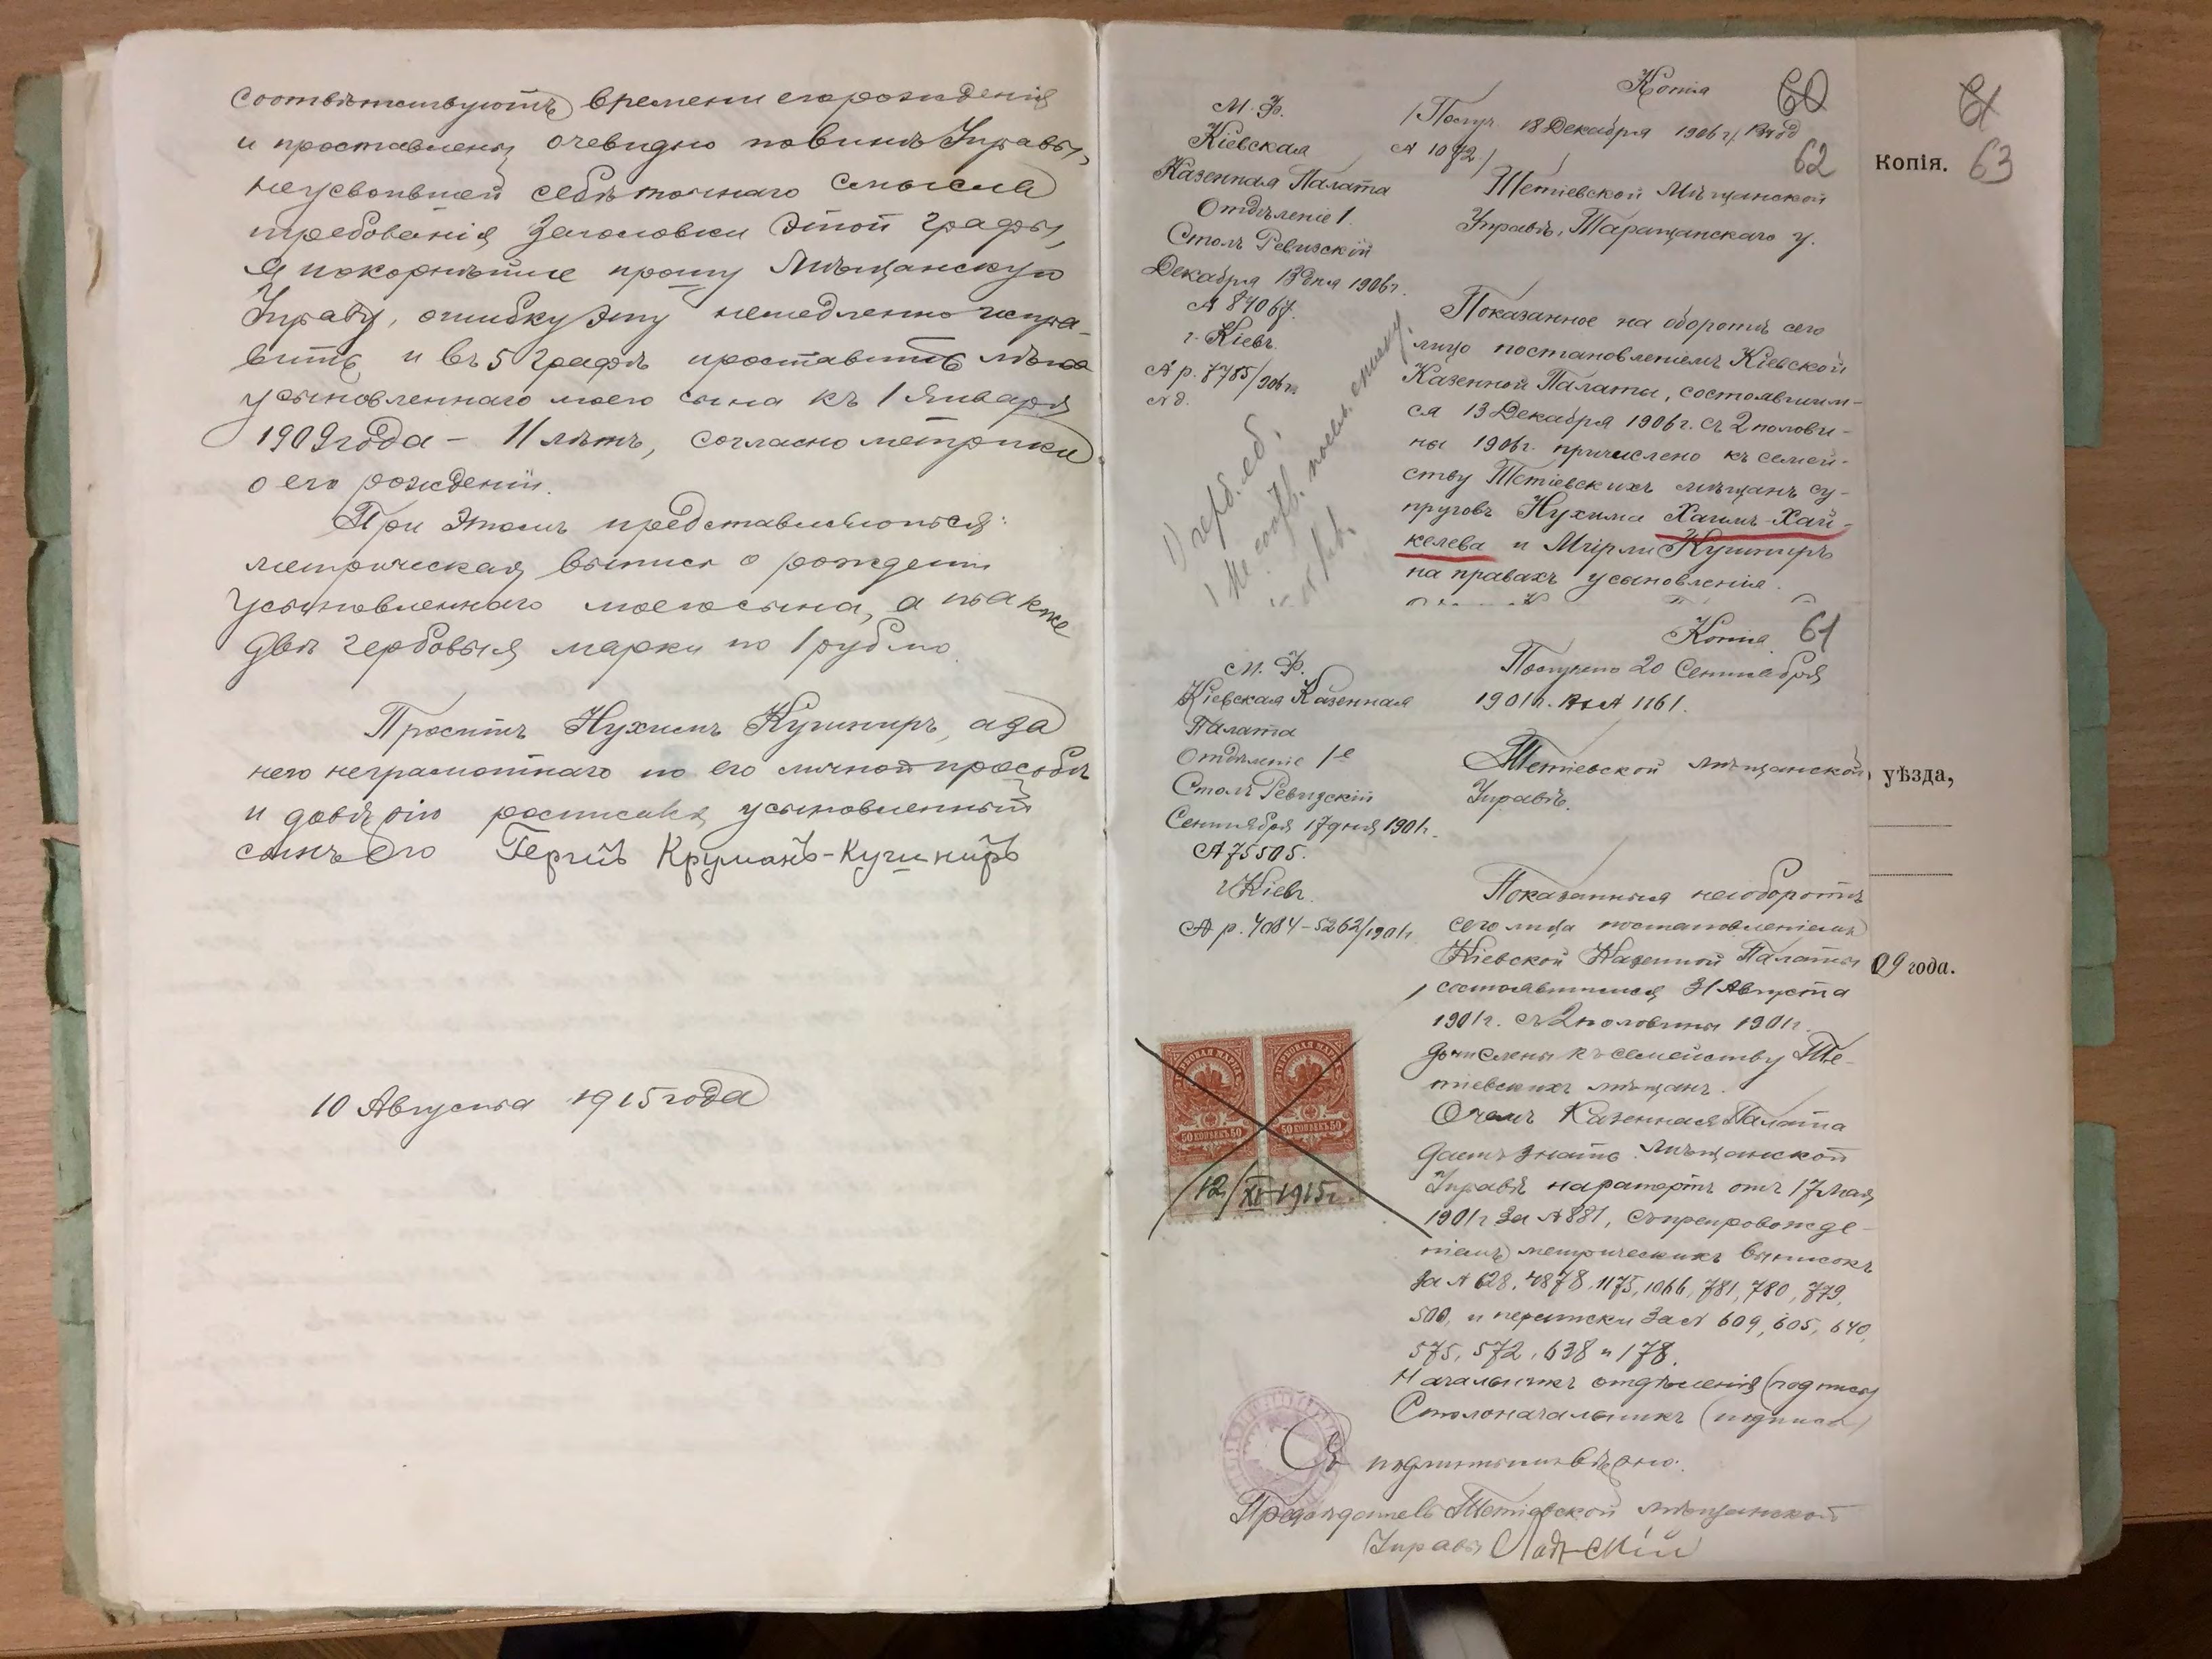 соотвѣтствуютъ времени его рожденія
и проставлены очевидно по винѣ Управы,
неусвоившей себѣ точнаго смысла
требованія заголовки этой графы,
я покорнѣйше прошу Мѣщанскую
Управу, ошибку эту немедленно испра-
вить и въ 5 графѣ проставить лѣта
усыновленнаго моего сына къ 1 Января
1909 года – 11 лѣтъ, согласно метрики
о его рожденіи.
При этомъ представляются:
метрическая выпись о рожденіи
усыновленнаго моего сына, а также
двѣ гербовыя марки по 1 рублю.
Проситъ Нухимъ Кушниръ, а за
него неграмотнаго по его личной просьбѣ
и довѣрію росписался усыновленный
сынъ его Гершъ Круманъ-Кушниръ
10 Августа 1915 года
Копія 60
62
М. Ф.
Кіевская
Казенная Палата
Отдѣленіе 1.
Столъ Ревизскій
Декабря 13 дня 1906 г.
№ 84067.
г. Кіевъ.
№ р. 7785/906 г.
/Получ. 18 Декабря 1906 г./ Вход
№ 1072/
Тетіевской Мѣщанской
Управѣ, Таращанскаго у.
Показанное на оборотѣ сего
лицо постановленіемъ Кіевской
Казенной Палаты, состоявшим-
ся 13 Декабря 1906 г. съ 2 полови-
ны 1906 г. причислено къ семей-
ству Тетіевскихъ мѣщанъ су-
пруговъ Нухима Хаимъ-Хай-
келева и Мгірли Кушниръ
на правахъ усыновленія.
1) герб. сб.
Копія 61
М. Ф.
Кіевская Казенная
Палата
Отдѣленіе 1-е
Столъ Ревизскій
Сентября 17 дня 1901 г.
№ 75505.
г. Кіевъ.
№ р. 4084–5262/1901 г.
Получено 20 Сентября
1901 г. Вх № 1161.
Тетіевской мѣщанской
Управѣ.
Показанныя на оборотѣ
сего лица постановленіемъ
Кіевской Казенной Палаты
состоявшимся 31 Августа
1901 г. съ 2 половины 1901 г.
дочислены къ семейству Те-
тіевскихъ мѣщанъ.
О чемъ Казенная Палата
даетъ знать Мѣщанской
Управѣ на рапортъ отъ 17 Мая
1901 г за № 881, съ препровожде-
ніемъ метрическихъ выписокъ
за № 628, 4878, 1175, 1066, 781, 780, 779,
500, и переписки за № 609, 605, 640,
575, 572, 638 и 178.
Начальникъ отдѣленія (подпись)
Столоначальникъ (подпись)
Съ подлиннымъ вѣрно.
Предсѣдатель Тетіевской мѣщанской
Управы
ГЕРБОВАЯ МАРКА
50 КОПѢЕКЪ 50
ГЕРБОВАЯ МАРКА
50 КОПѢЕКЪ 50
12/XI 1915 г.
61
Копія. 63
уѣзда,
09 года.